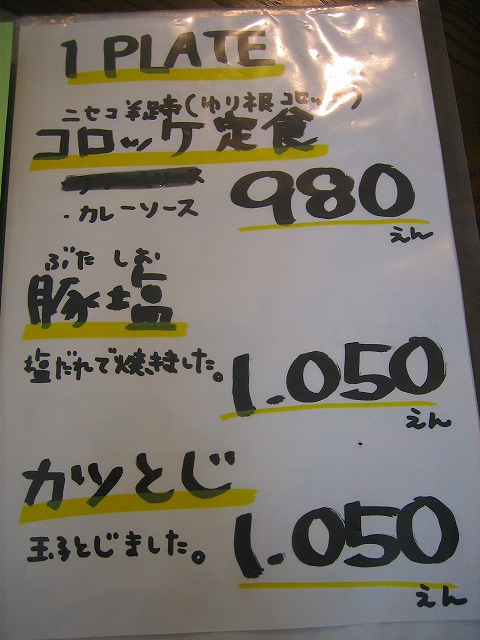 1 PLATE
ニセコ (ゆり根コロッケ)
コロッケ定食
・カレーソース
980
えん
ぶた しお
豚塩
塩だれで焼きました。
1.050
えん
カツとじ
玉子とじました。
1.050
えん